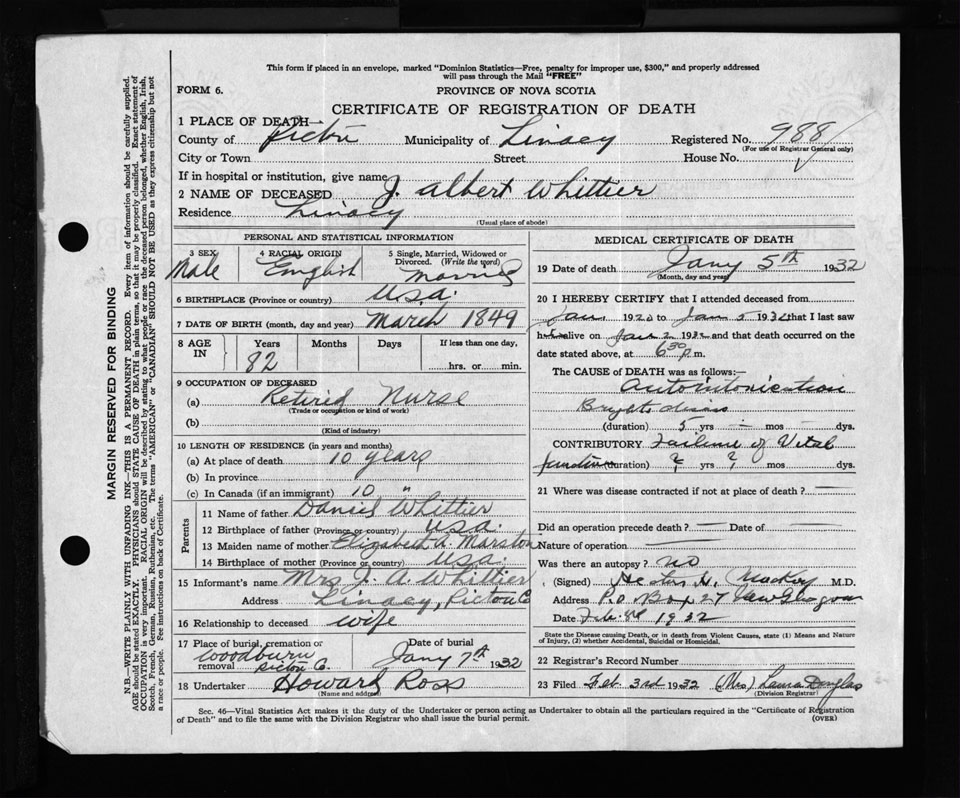 This form if placed in an envelope, marked "Dominion Statistics—Free, penalty for improper use, $300," and properly addressed
will pass through the Mail "FREE"
FORM 6.
PROVINCE OF NOVA SCOTIA
CERTIFICATE OF REGISTRATION OF DEATH
1 PLACE OF DEATH—
County of Pictou Municipality of Linacy Registered No. 988
(For use of Registrar General only)
City or Town Street House No.
If in hospital or institution, give name
2 NAME OF DECEASED J. Albert Whittier
Residence Linacy
(Usual place of abode)
PERSONAL AND STATISTICAL INFORMATION
3 SEX Male
4 RACIAL ORIGIN English
5 Single, Married, Widowed or Divorced. (Write the word) Married
6 BIRTHPLACE (Province or country) U.S.A.
7 DATE OF BIRTH (month, day and year) March 1849
8 AGE IN Years 82 Months Days If less than one day, hrs. or min.
9 OCCUPATION OF DECEASED
(a) Retired Nurse
(Trade or occupation or kind of work)
(b)
(Kind of industry)
10 LENGTH OF RESIDENCE (in years and months)
(a) At place of death 10 years
(b) In province
(c) In Canada (if an immigrant) 10 "
Parents
11 Name of father Daniel Whittier
12 Birthplace of father (Province or country) U.S.A.
13 Maiden name of mother Elizabeth A. Marston
14 Birthplace of mother (Province or country) U.S.A.
15 Informant's name Mrs J. A. Whittier
Address Linacy, Pictou Co
16 Relationship to deceased wife
17 Place of burial, cremation or removal Woodburn Pictou Co. Date of burial Jany 7th 1932
18 Undertaker Howard Ross
(Name and address)
MEDICAL CERTIFICATE OF DEATH
19 Date of death Jany 5th 1932
(Month, day and year)
20 I HEREBY CERTIFY that I attended deceased from
Jan. 1920 to Jan 5 1932 that I last saw
alive on Jan 2 1932 and that death occurred on
date stated above, at 6 30 p.m.
The CAUSE OF DEATH was as follows:—
Autointoxication
Brights disease
(duration) 5 yrs — mos — dys.
CONTRIBUTORY Failure of Vital
functions (duration) ? yrs ? mos dys.
21 Where was disease contracted if not at place of death? —
Did an operation precede death? — Date of —
Nature of operation —
Was there an autopsy? No
(Signed) H. MacKay M.D.
Address P.O. Box 27 New Glasgow
Date Feb. 1932
State the Disease causing Death, or in death from Violent Causes, state (1) Means and Nature
of Injury, (2) whether Accidental, Suicidal or Homicidal.
22 Registrar's Record Number
23 Filed Feb 3rd 1932 (Mrs) Laura Douglas
(Division Registrar)
Sec. 46—Vital Statistics Act makes it the duty of the Undertaker or person acting as Undertaker to obtain all the particulars required in the "Certificate of Registration
of Death" and to file the same with the Division Registrar who shall issue the burial permit.
(OVER)
MARGIN RESERVED FOR BINDING
N.B.—WRITE PLAINLY WITH UNFADING INK—THIS IS A PERMANENT RECORD. Every item of information should be carefully supplied.
AGE should be stated EXACTLY. PHYSICIANS should state CAUSE OF DEATH in plain terms, so that it may be properly classified. Exact statement of
OCCUPATION is very important. RACIAL ORIGIN will be described by stating to what people or race the deceased person belonged, whether English, Irish,
Scotch, French, German, Russian, Ruthenian, etc. The terms "AMERICAN" or "CANADIAN" SHOULD NOT BE USED as they express citizenship but not
a race or people. See instructions on back of Certificate.